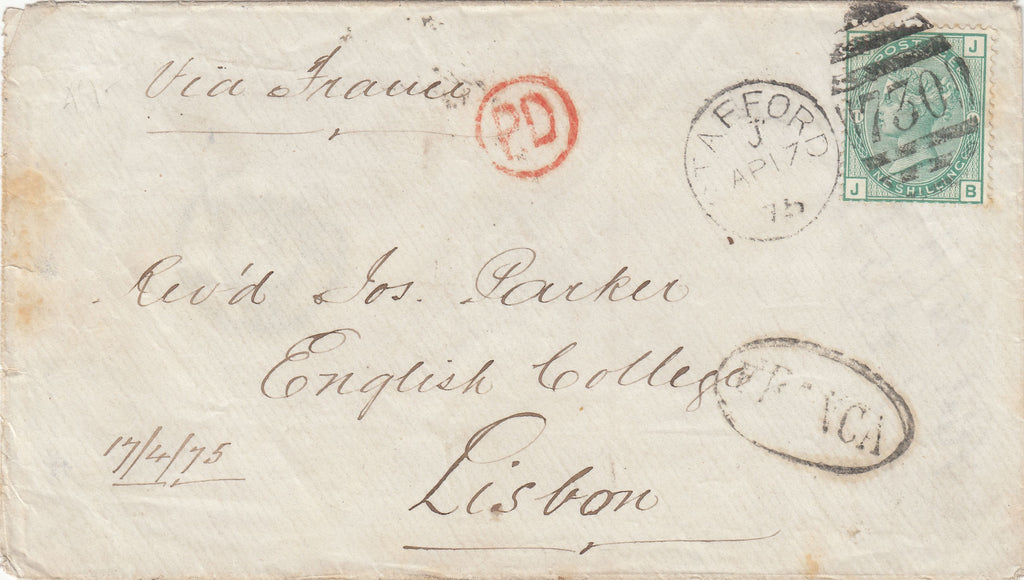 Via France
PD
STAFFORD
J
AP 17
75
POST
J
730
ONE SHILLING
J B
Rev'd Jos. Parker
English College
FRANCA
17/4/75
Lisbon